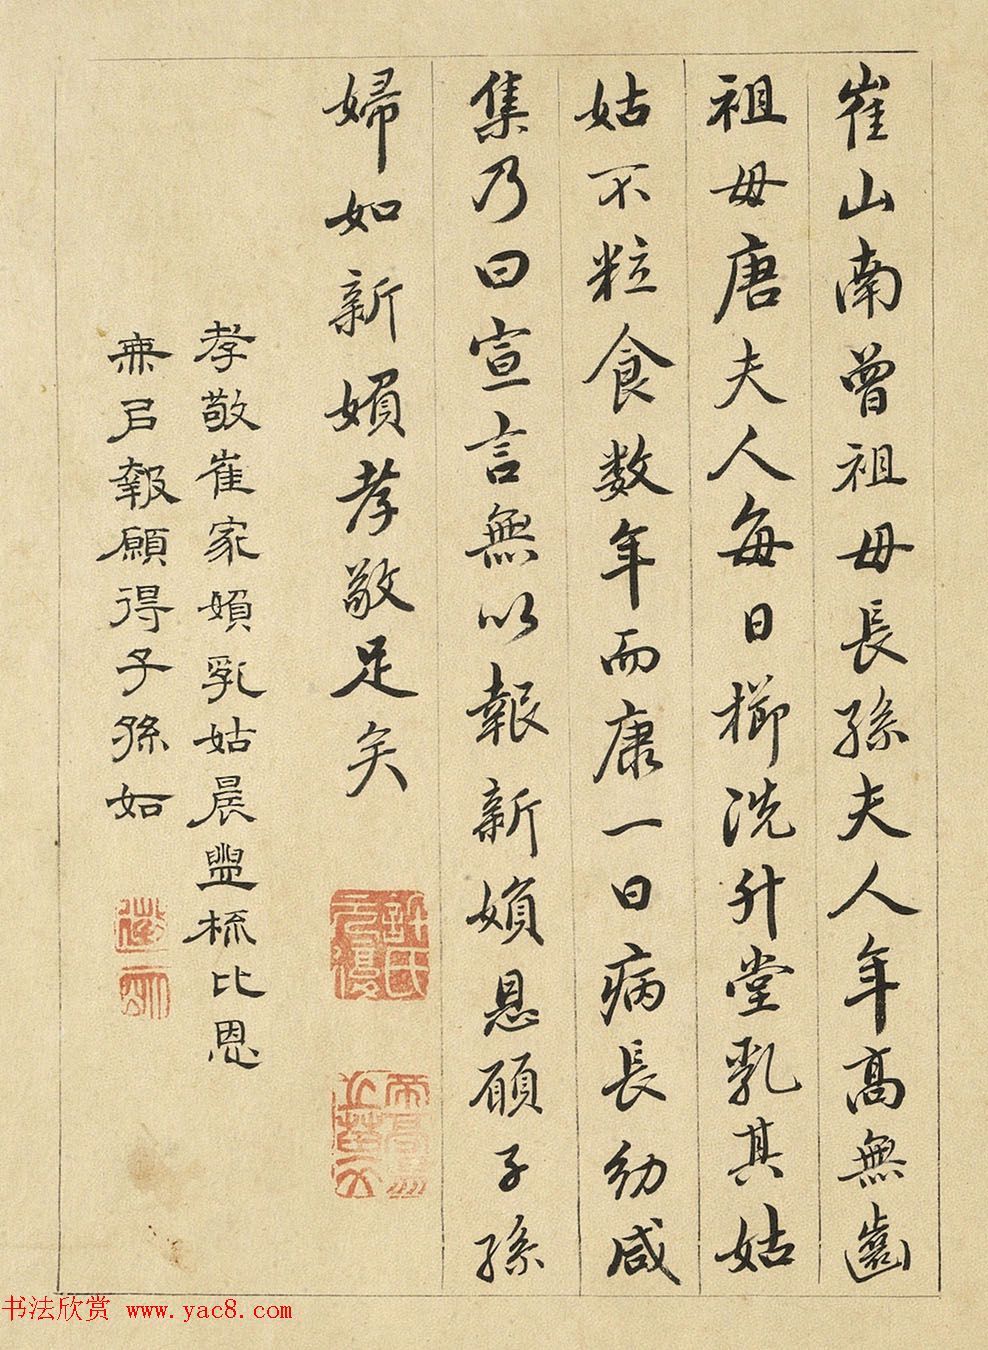 崔山南曾祖母長孫夫人年高無齒
祖母唐夫人每日櫛洗升堂乳其姑
姑不粒食数年而康一日病長幼咸
集乃曰宣言無以報新婦恩願子孫
婦如新婦孝敬足矣
孝敬崔家婦乳姑晨盥梳比恩
無以報願得子孫如
书法欣赏 www.yac8.com